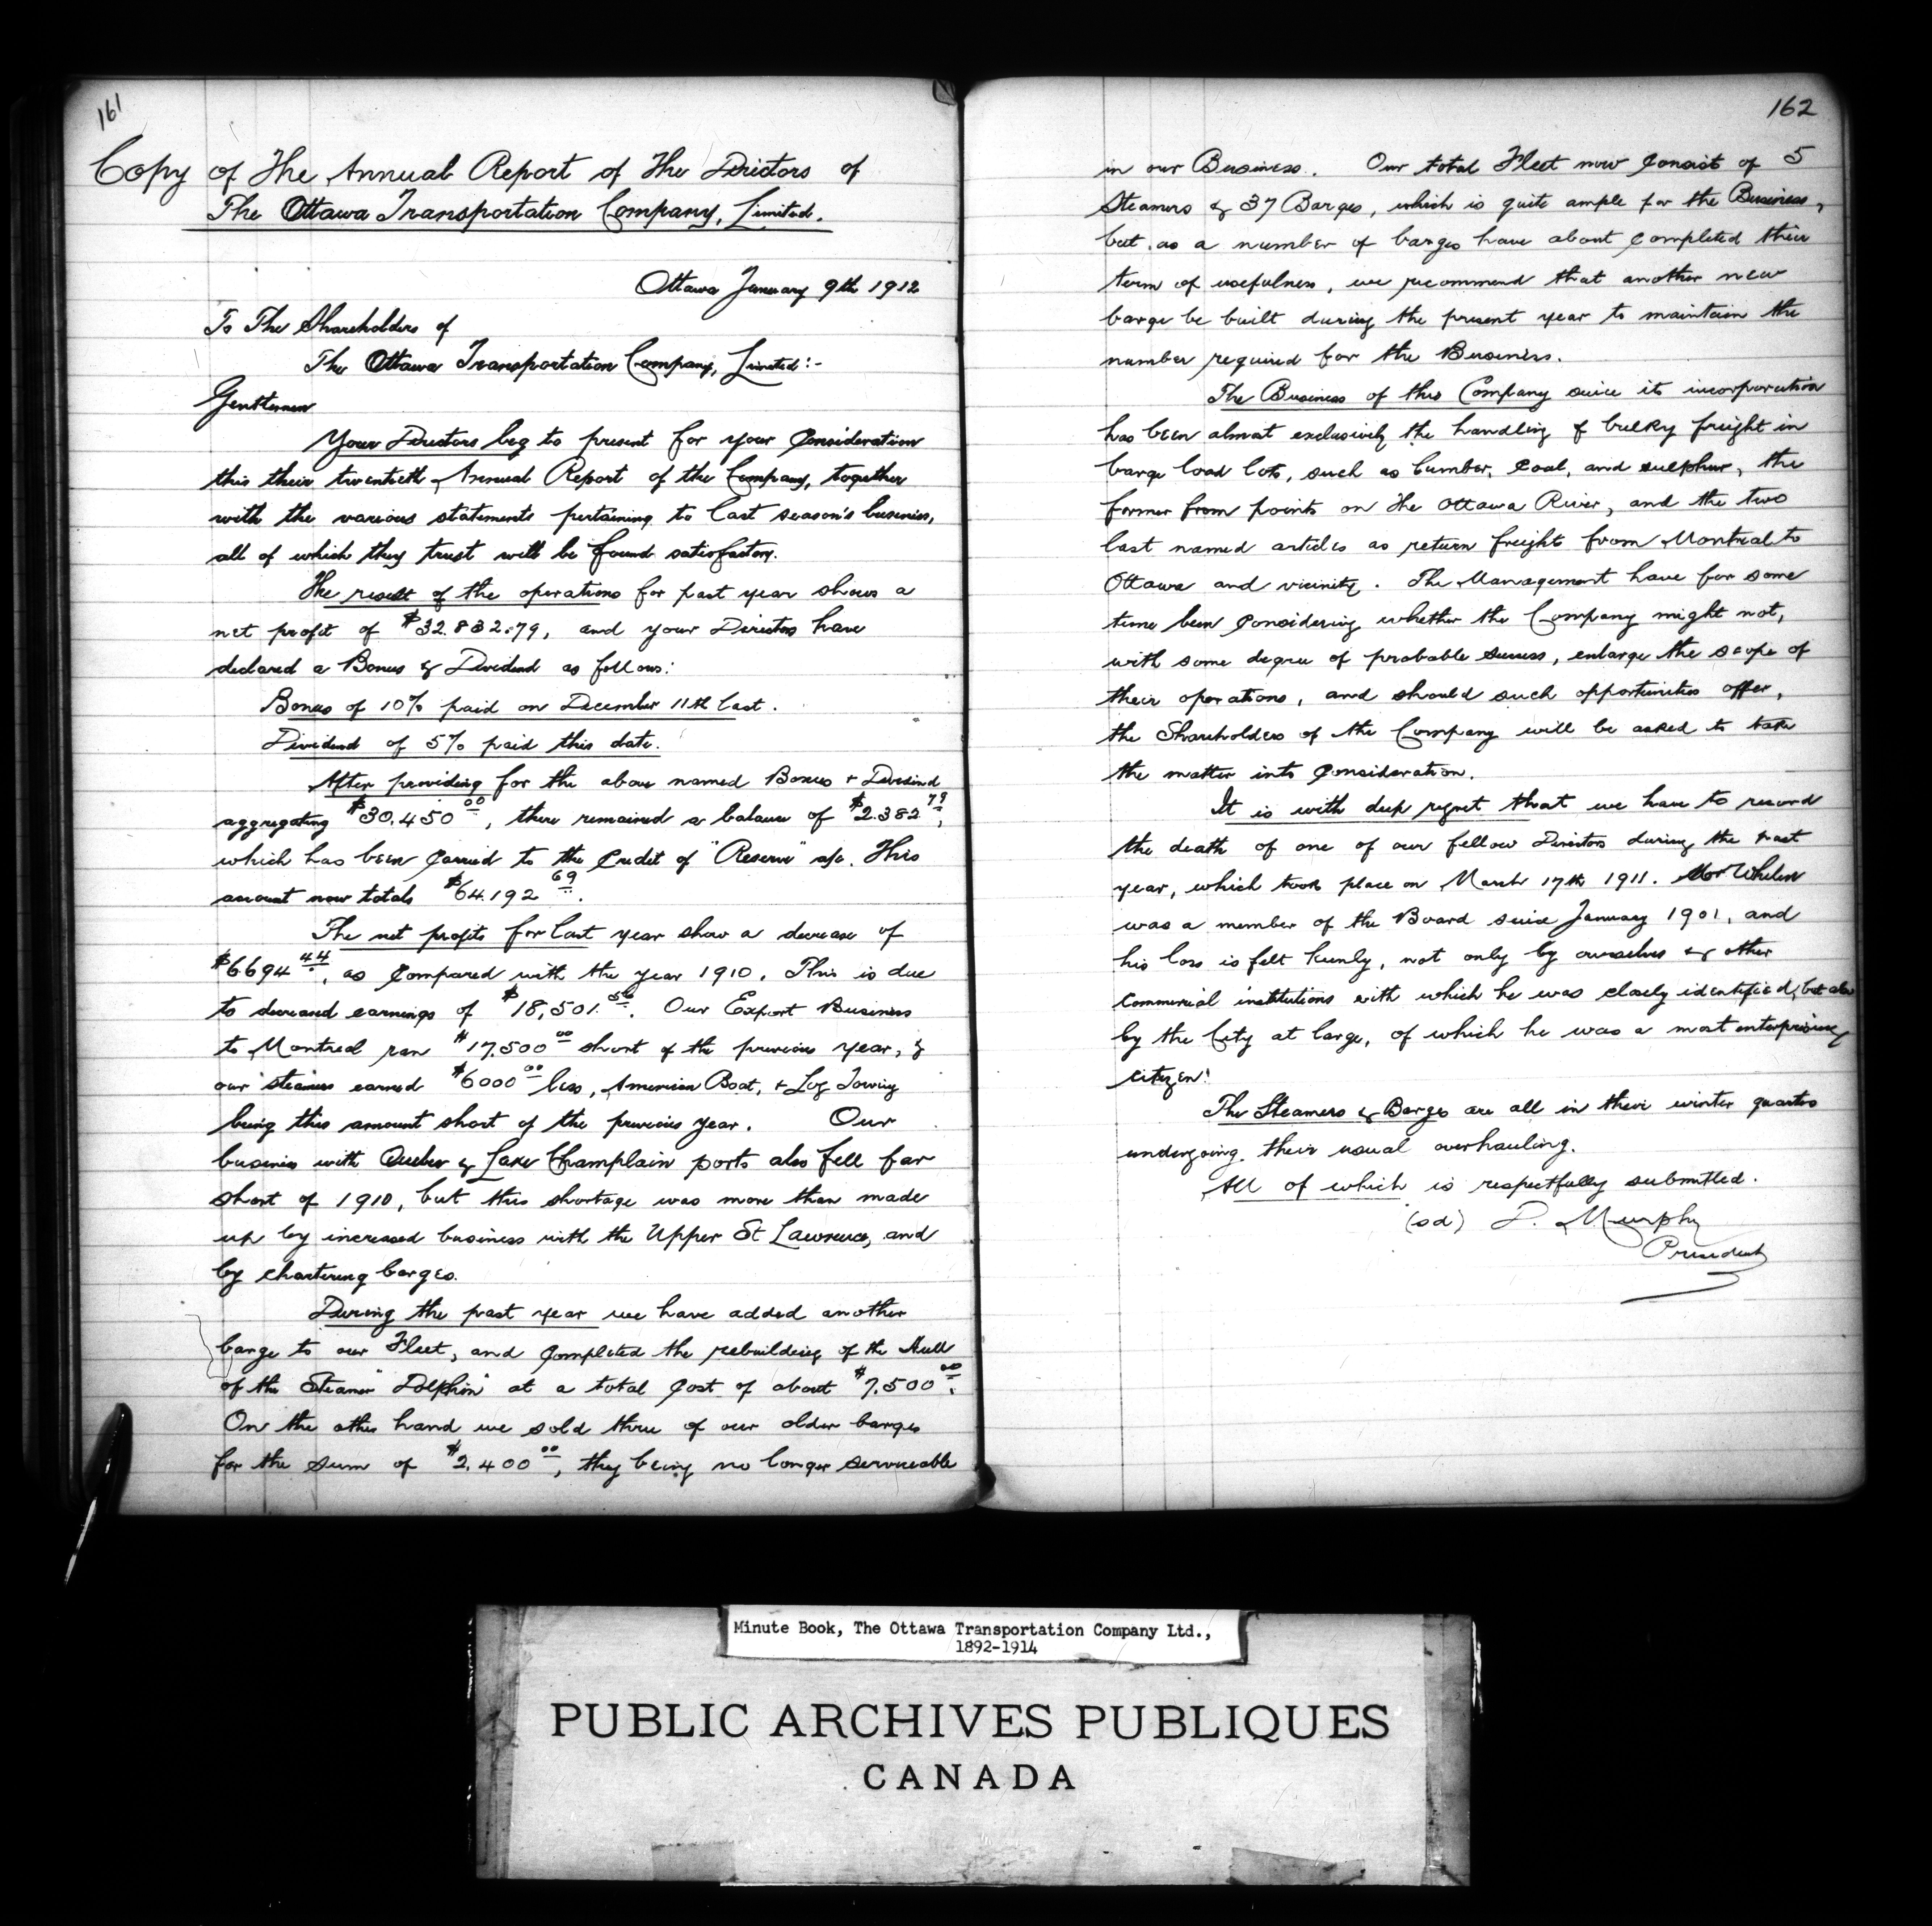 161
Copy of The Annual Report of The Directors of
The Ottawa Transportation Company, Limited.
Ottawa January 9th 1912
To The Shareholders of
The Ottawa Transportation Company, Limited:-
Gentlemen
Your Directors beg to present for your Consideration
this their twentieth Annual Report of the Company, together
with the various statements pertaining to last season's business,
all of which they trust will be found satisfactory.
The result of the operations for past year shows a
net profit of $32.832.79, and your Directors have
declared a Bonus & Dividend as follows:
Bonus of 10% paid on December 11th last.
Dividend of 5% paid this date.
After providing for the above named Bonus + Dividend
aggregating $30.450 00, there remained a balance of $2.382 79,
which has been Carried to the Credit of "Reserve" a/c. This
amount now totals $64.192 69.
The net profits for last year show a decrease of
$6694 44, as Compared with the year 1910. This is due
to decreased earnings of $18,501. 56. Our Export Business
to Montreal ran $17.500 00 short of the previous year, &
our steamers earned $6000 00 less, American Boat, + Log Towing
being this amount short of the previous year. Our
business with Quebec & Lake Champlain ports also fell far
short of 1910, but this shortage was more than made
up by increased business with the Upper St Lawrence, and
by chartering barges.
During the past year we have added another
barge to our Fleet, and Completed the rebuilding of the Hull
of the Steamer "Dolphin" at a total Cost of about $7.500 00.
On the other hand we sold three of our older barges
for the sum of $2.400 00, they being no longer serviceable
162
in our Business. Our total Fleet now Consist of 5
Steamers & 37 Barges, which is quite ample for the Business,
but as a number of barges have about Completed their
term of usefulness, we recommend that another new
barge be built during the present year to maintain the
number required for the Business.
The Business of this Company since its incorporation
has been almost exclusively the handling of bulky freight in
barge load lots, such as lumber, Coal, and sulphur, the
former from points on the Ottawa River, and the two
last named articles as return freight from Montreal to
Ottawa and vicinity. The Management have for some
time been Considering whether the Company might not,
with some degree of probable success, enlarge the scope of
their operations, and should such opportunities offer,
the Shareholders of the Company will be asked to take
the matter into Consideration.
It is with deep regret that we have to record
the death of one of our fellow Directors during the past
year, which took place on March 17th 1911. Mr Whelen
was a member of the Board since January 1901, and
his loss is felt keenly, not only by ourselves & other
Commercial institutions with which he was closely identified, but also
by the City at large, of which he was a most enterprising
citizen.
The Steamers & Barges are all in their winter quarters
undergoing their usual overhauling.
All of which is respectfully submitted.
(sd) D. Murphy
President
Minute Book, The Ottawa Transportation Company Ltd.,
1892-1914
PUBLIC ARCHIVES PUBLIQUES
CANADA